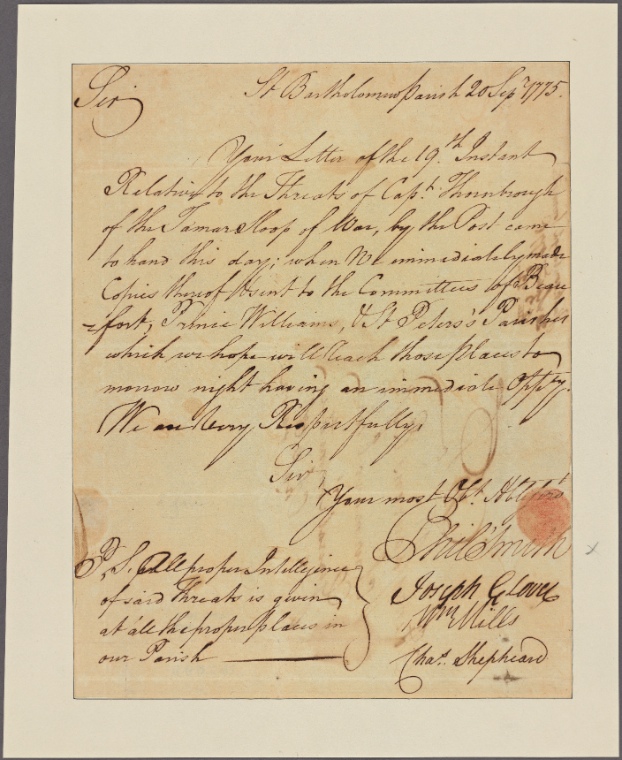 St Bartholomews parish 20 Sepr 1775.
Sir
Your Letter of the 19th Instant
Relative to the Threats of Capt. Thornbrough
of the Tamar Sloop of War, by the Post came
to hand this day; when We immediately made
Copies thereof & sent to the Committees of Beau
=fort, Prince Williams, & St Peters's Parishes
which we hope will reach those places to
morrow night having an immediate Oppty.
We are Very Respectfully,
Sir
Your most Obt. Hble
Phil Smith
Joseph Glover
Wm Mills
Chas. Shepheard
P.S. All proper Intelligence
of said threats is given
at all the proper places in
our Parish